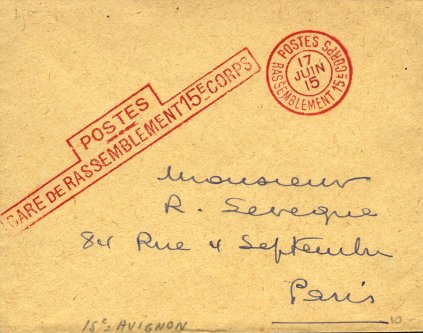 POSTES
GARE DE RASSEMBLEMENT 15E CORPS
POSTES
RASSEMBLEMENT 15E CORPS
17
JUIN
15
Monsieur
R. Seveque
84 Rue 4 Septembre
Paris
15e = AVIGNON
10